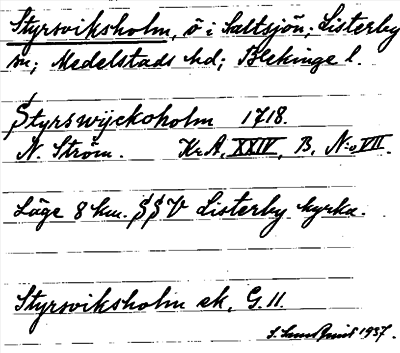 Styrsviksholm, ö i Saltsjön; Listerby
sn; Medelstads hd; Blekinge l.
Styrswijckoholm 1718.
N. Ström. Kr.A. XXIV, B, N:o VII.
Läge 8 km. SSV Listerby kyrka.
Styrsviksholm ek. G. 11.
1937.